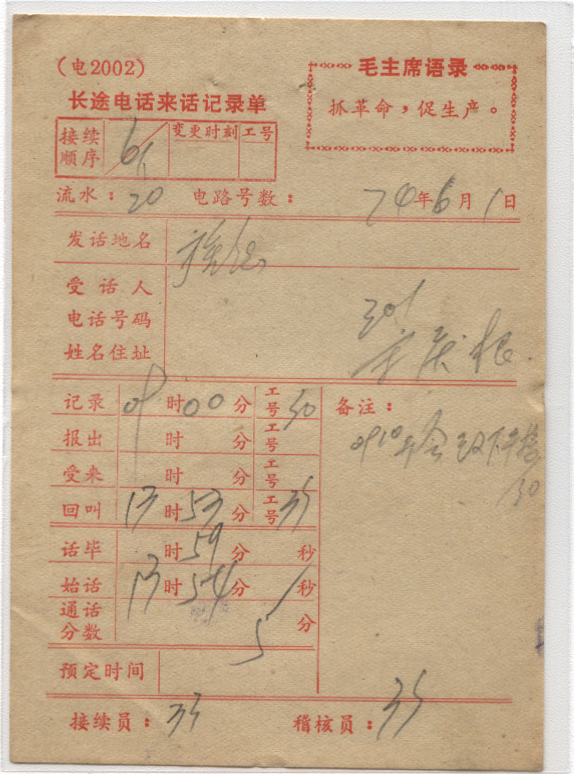 (电2002)
长途电话来话记录单
毛主席语录
抓革命，促生产。
接续顺序 6/1 变更时刻 工号
流水：20 电路号数： 74年6月1日
发话地名
受话人
电话号码 301
姓名住址
记录 09时00分 工号 30
报出 时 分 工号
受来 时 分 工号
回叫 13时53分 工号 35
备注：
话毕 时59分 秒
始话 13时54分 秒
通话分数 5分
预定时间
接续员：35 稽核员：35